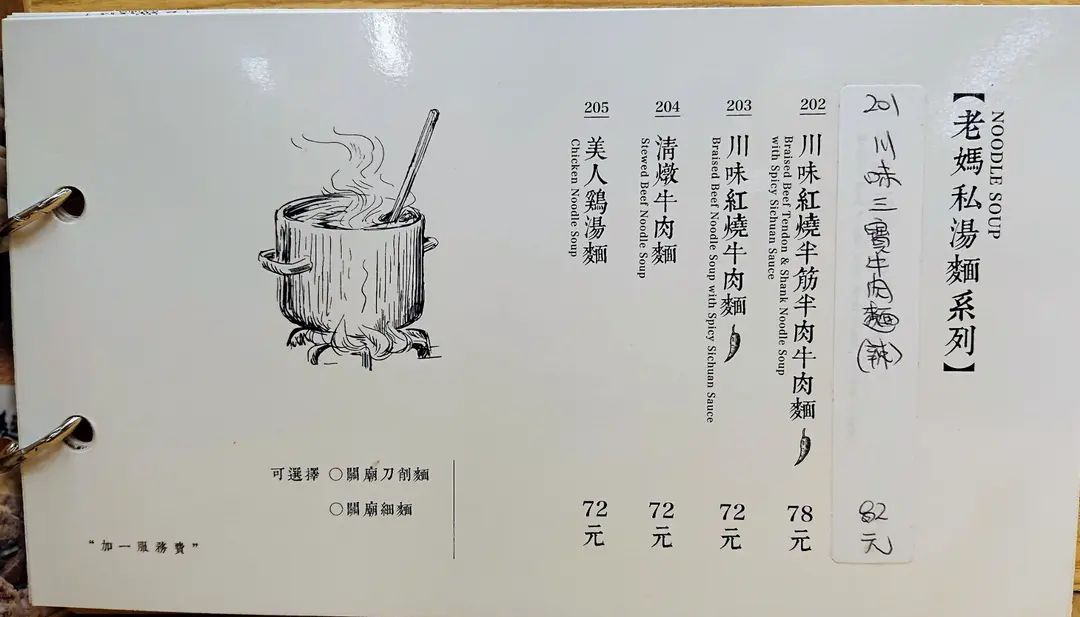 【老媽私湯麵系列】
NOODLE SOUP
201 川味三寶牛肉麵(辣) 82元
202
川味紅燒半筋半肉牛肉麵
Braised Beef Tendon & Shank Noodle Soup
with Spicy Sichuan Sauce
78元
203
川味紅燒牛肉麵
Braised Beef Noodle Soup with Spicy Sichuan Sauce
72元
204
清燉牛肉麵
Stewed Beef Noodle Soup
72元
205
美人鷄湯麵
Chicken Noodle Soup
72元
可選擇 ○關廟刀削麵
○關廟細麵
“加一服務費”